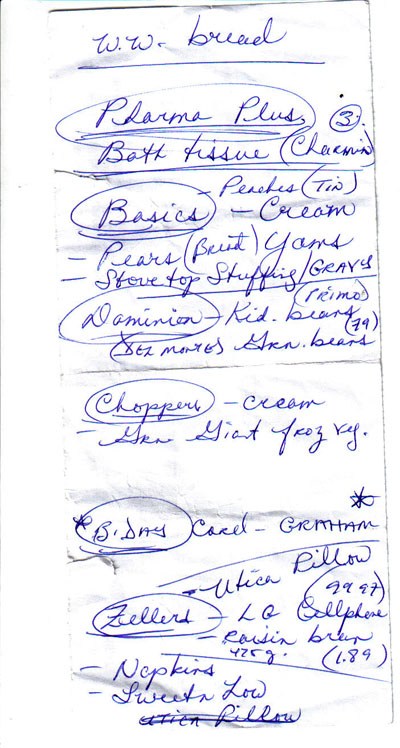 W.W. bread
Pharma Plus (3)
Bath tissue (Charmin)
- Peaches (TIN)
Basics - Cream
- Pears (Bried) Yams
- Stove top Stuffing/GRAVY
(PRIMO)
Dominion - Kid. beans (79)
(DEL MONTE) Grn. beans
Choppers - cream
- Grn Giant froz veg.
*
*B.DAY Card - GRAHAM
- Utica Pillow
(99 97)
Zellers - LG Cellphone
- Raisin bran
425g. (1.89)
- Napkins
- Sweetn Low
Utica Pillow